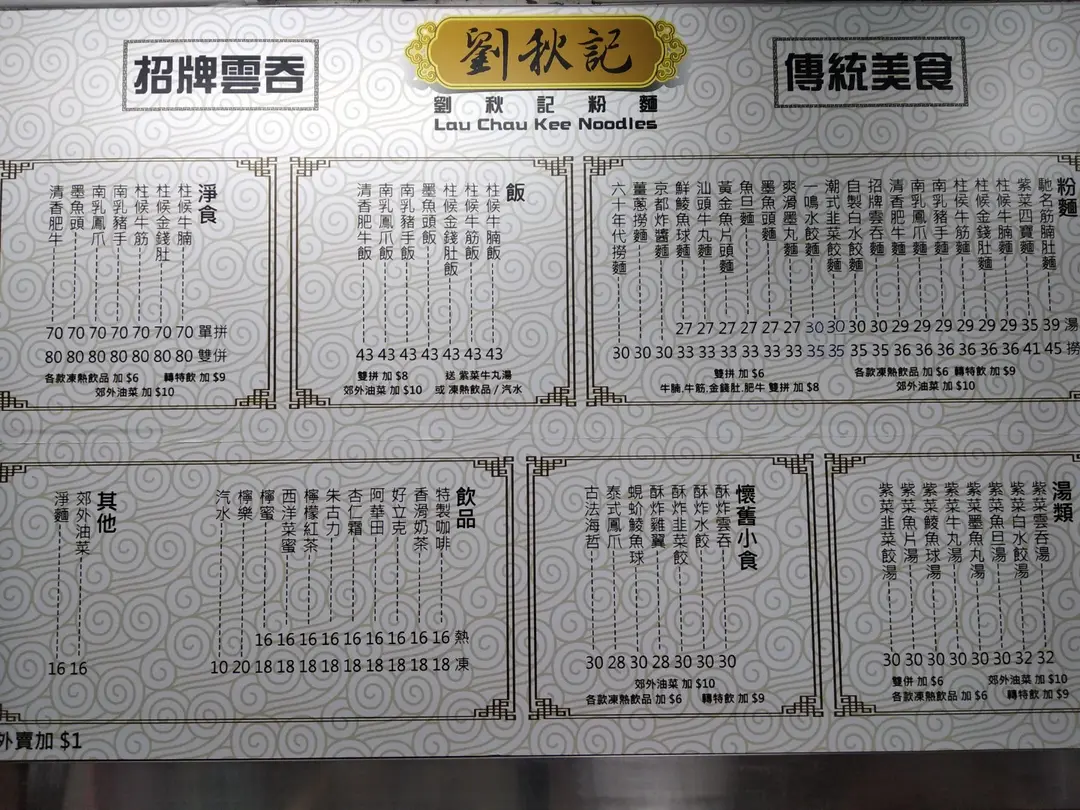 招牌雲吞
劉秋記
劉秋記粉麵
Lau Chau Kee Noodles
傳統美食
淨食
柱候牛腩
柱候金錢肚
柱候牛筋
南乳豬手
南乳鳳爪
墨魚頭
清香肥牛
70 70 70 70 70 70 70 單拼
80 80 80 80 80 80 80 雙併
各款凍熱飲品 加 $6 轉特飲 加 $9
郊外油菜 加 $10
飯
柱候牛腩飯
柱候牛筋飯
柱候金錢肚飯
墨魚頭飯
南乳豬手飯
南乳鳳爪飯
清香肥牛飯
43 43 43 43 43 43 43
雙拼 加 $8 送 紫菜牛丸湯
郊外油菜 加 $10 或 凍熱飲品 / 汽水
粉麵
馳名筋腩肚麵
紫菜四寶麵
柱候牛腩麵
柱候金錢肚麵
柱侯牛筋麵
南乳豬手麵
南乳鳳爪麵
清香肥牛麵
招牌雲吞麵
自製白水餃麵
潮式韭菜餃麵
一鳴水餃麵
爽滑墨丸麵
墨魚頭麵
魚旦麵
黃金魚片頭麵
汕頭牛丸麵
鮮鯪魚球麵
京都炸醬麵
薑蔥撈麵
六十年代撈麵
27 27 27 27 27 27 30 30 30 30 29 29 29 29 29 29 35 39 湯
30 30 30 33 33 33 33 33 33 35 35 35 35 36 36 36 36 36 36 41 45 撈
雙拼 加 $6 各款凍熱飲品 加 $6 轉特飲 加 $9
牛腩,牛筋,金錢肚,肥牛 雙拼 加 $8 郊外油菜 加 $10
其他
郊外油菜
淨麵
16 16
飲品
特製咖啡
香滑奶茶
好立克
阿華田
杏仁霜
朱古力
檸檬紅茶
西洋菜蜜
檸蜜
檸樂
汽水
16 16 16 16 16 16 16 16 16 熱
10 20 18 18 18 18 18 18 18 18 18 凍
懷舊小食
酥炸雲吞
酥炸水餃
酥炸韭菜餃
酥炸雞翼
蜆蚧鯪魚球
泰式鳳爪
古法海哲
30 28 30 28 30 30 30
郊外油菜 加 $10
各款凍熱飲品 加 $6 轉特飲 加 $9
湯類
紫菜雲吞湯
紫菜白水餃湯
紫菜魚旦湯
紫菜墨魚丸湯
紫菜牛丸湯
紫菜鯪魚球湯
紫菜魚片湯
紫菜韭菜餃湯
30 30 30 30 30 30 32 32
雙併 加 $6 郊外油菜 加 $10
各款凍熱飲品 加 $6 轉特飲 加 $9
外賣加 $1